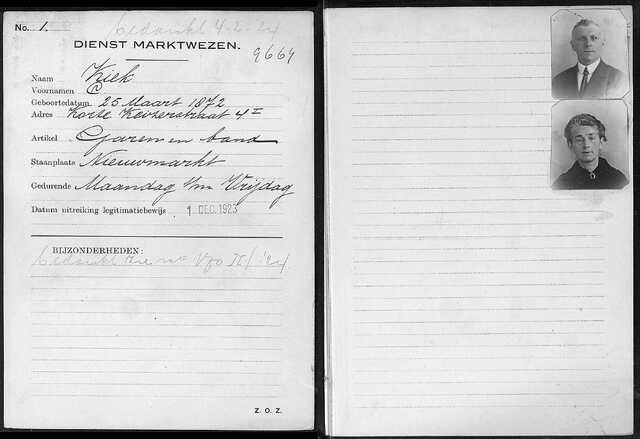 No. 1.
bedankt 4-2-'24
DIENST MARKTWEZEN.
9664
Naam Kiek
Voornamen C
Geboortedatum 25 Maart 1872
Adres Korte Keizerstraat 4 I
Artikel Garen en band
Staanplaats Nieuwmarkt
Gedurende Maandag t/m Vrijdag
Datum uitreiking legitimatiebewijs 1 DEC. 1923
BIJZONDERHEDEN:
bedankt zie II/'24
Z. O. Z.